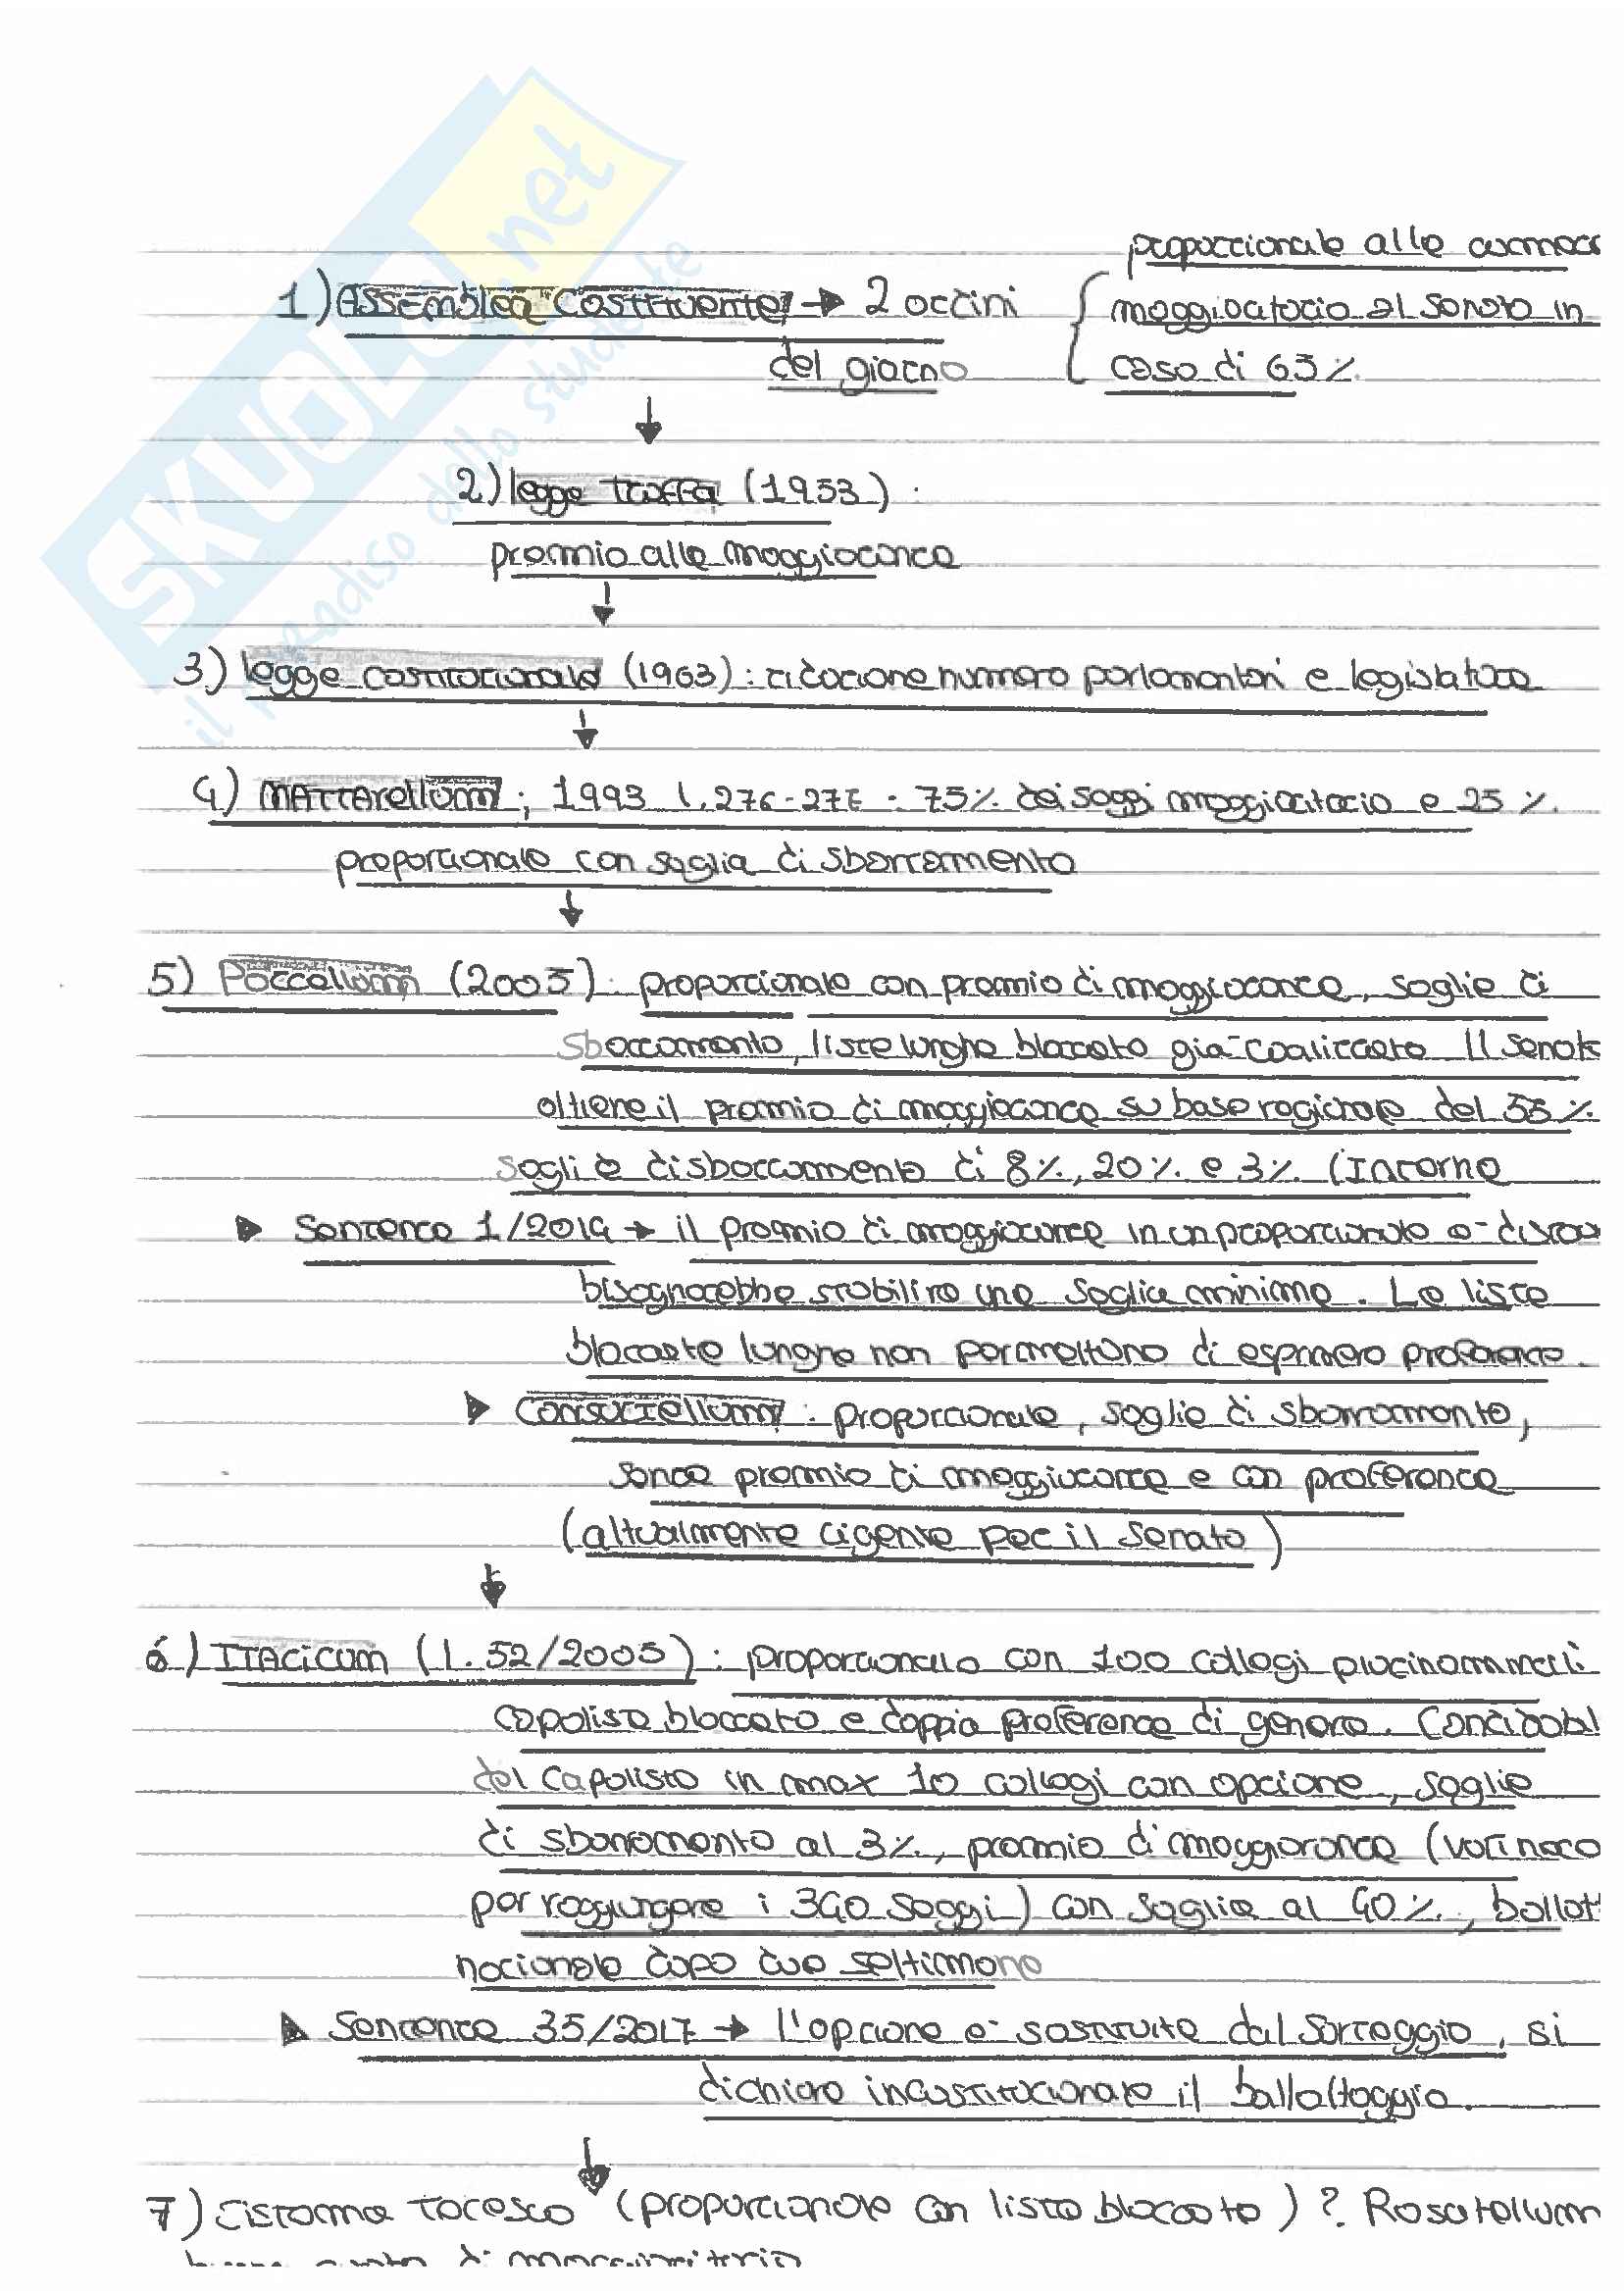 SKUOLA.net
il paradiso dello studente
proporzionale alla camera
1) Assemblea Costituente → 2 ordini maggioritario al Senato in
del giorno caso di 65%
2) legge truffa (1953)
premio alla maggioranza
3) legge costituzionale (1963): riduzione numero parlamentari e legislatura
4) MATTArellum; 1993 l. 276-277: 75% dei seggi maggioritario e 25%
proporzionale con soglia di sbarramento
5) Porcellum (2005): proporzionale con premio di maggioranza, soglie di
sbarramento, liste lunghe bloccate già coalizzate. Il Senato
ottiene il premio di maggioranza su base regionale del 55%
soglie di sbarramento di 8%, 20% e 3% (interne
Sentenza 1/2014 → il premio di maggioranza in un proporzionale è
bisognerebbe stabilire una soglia minima. Le liste
bloccate lunghe non permettono di esprimere preferenze.
Consultellum: proporzionale, soglie di sbarramento,
senza premio di maggioranza e con preferenza
(attualmente vigente per il Senato)
6) ITAlicum (l. 52/2005): proporzionale con 100 collegi plurinominali
capolista bloccato e doppia preferenza di genere. Candidabil
del capolista in max 10 collegi con opzione, soglie
di sbarramento al 3%, premio di maggioranza (voti nece
per raggiungere i 340 seggi) con soglia al 40%, ballott
nazionale dopo due settimane
Sentenza 35/2017 → l'opzione è sostituita dal sorteggio, si
dichiara incostituzionale il ballottaggio.
7) Sistema tedesco (proporzionale con liste bloccate)? Rosatellum